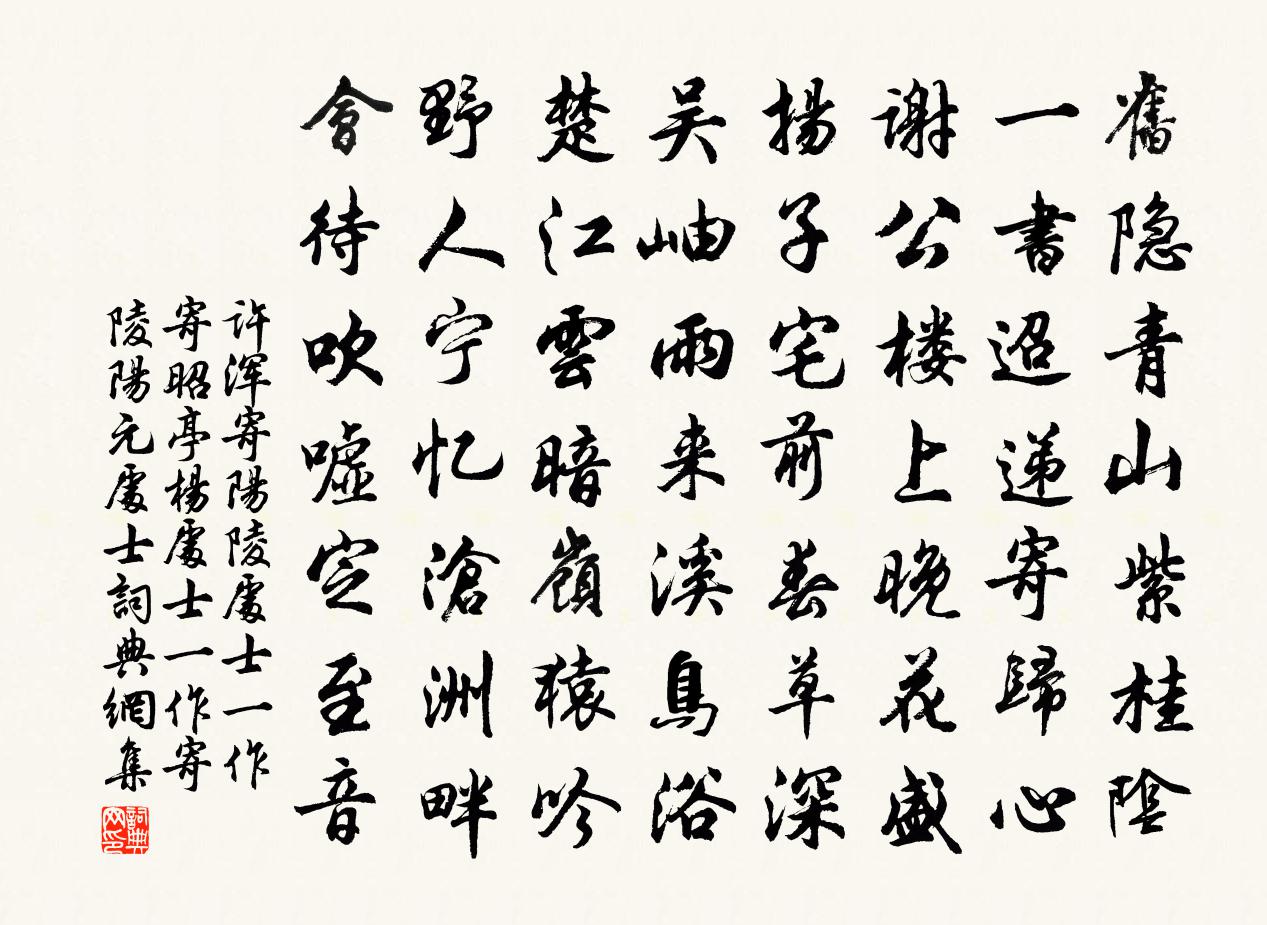 舊隐青山紫桂陰
一書迢递寄歸心
謝公楼上晚花盛
揚子宅前春草深
吴岫雨来溪鳥浴
楚江雲暗嶺猿吟
野人宁忆滄洲畔
會待吹嘘定至音
许浑寄陽陵處士一作
寄昭亭楊處士一作寄
陵陽元處士詞典網集
詞典
网印